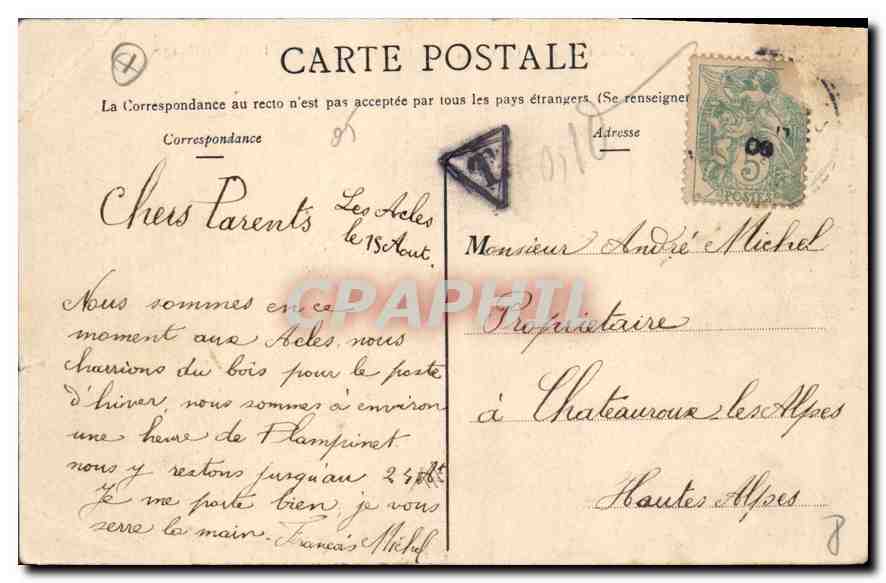 CARTE POSTALE
La Correspondance au recto n'est pas acceptée par tous les pays étrangers (Se renseigner
Correspondance
Adresse
T
06
5
POSTES
Chers Parents
Les Acles
le 15 Aout.
Nous sommes en ce
moment aux Acles, nous
charrions du bois pour le poste
d'hiver, nous sommes à environ
une heure de Plampinet
nous y restons jusqu'au 24 At
Je me porte bien, je vous
serre la main. Francois Michel
Monsieur André Michel
Propriétaire
à Chateauroux-les Alpes
Hautes Alpes
CPAPHIL